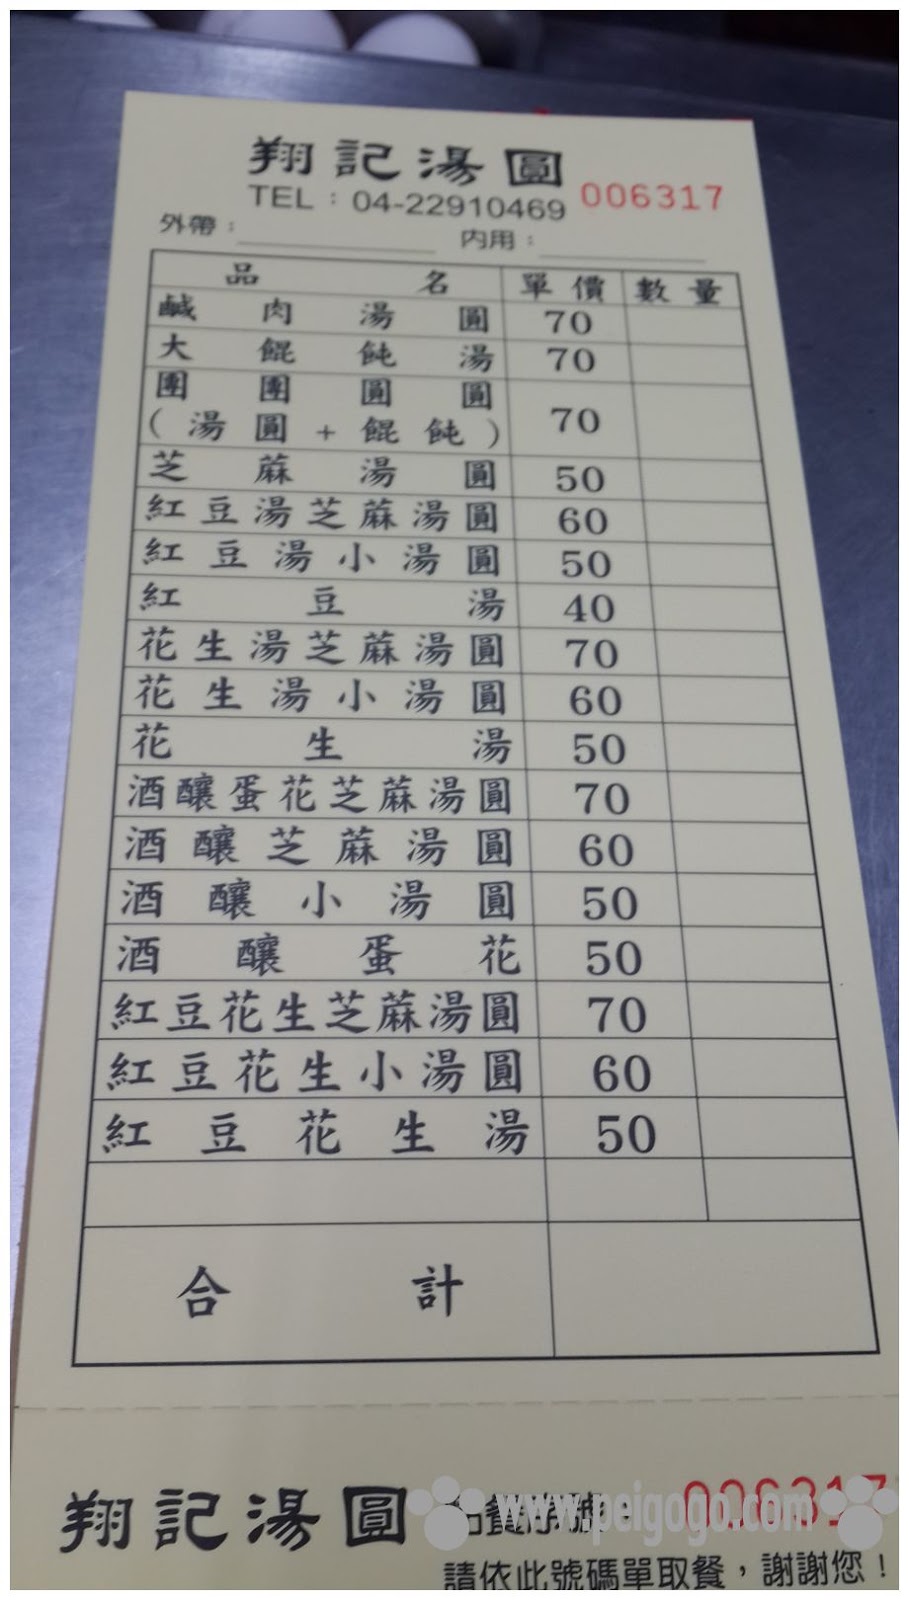 翔記湯圓
TEL：04-22910469 006317
外帶：　　　內用：
品名 單價 數量
鹹肉湯圓 70
大餛飩湯 70
團團圓圓
(湯圓+餛飩) 70
芝蔴湯圓 50
紅豆湯芝蔴湯圓 60
紅豆湯小湯圓 50
紅豆湯 40
花生湯芝蔴湯圓 70
花生湯小湯圓 60
花生湯 50
酒釀蛋花芝蔴湯圓 70
酒釀芝蔴湯圓 60
酒釀小湯圓 50
酒釀蛋花 50
紅豆花生芝蔴湯圓 70
紅豆花生小湯圓 60
紅豆花生湯 50
合計
翔記湯圓 006317
www.peigogo.com
請依此號碼單取餐，謝謝您！